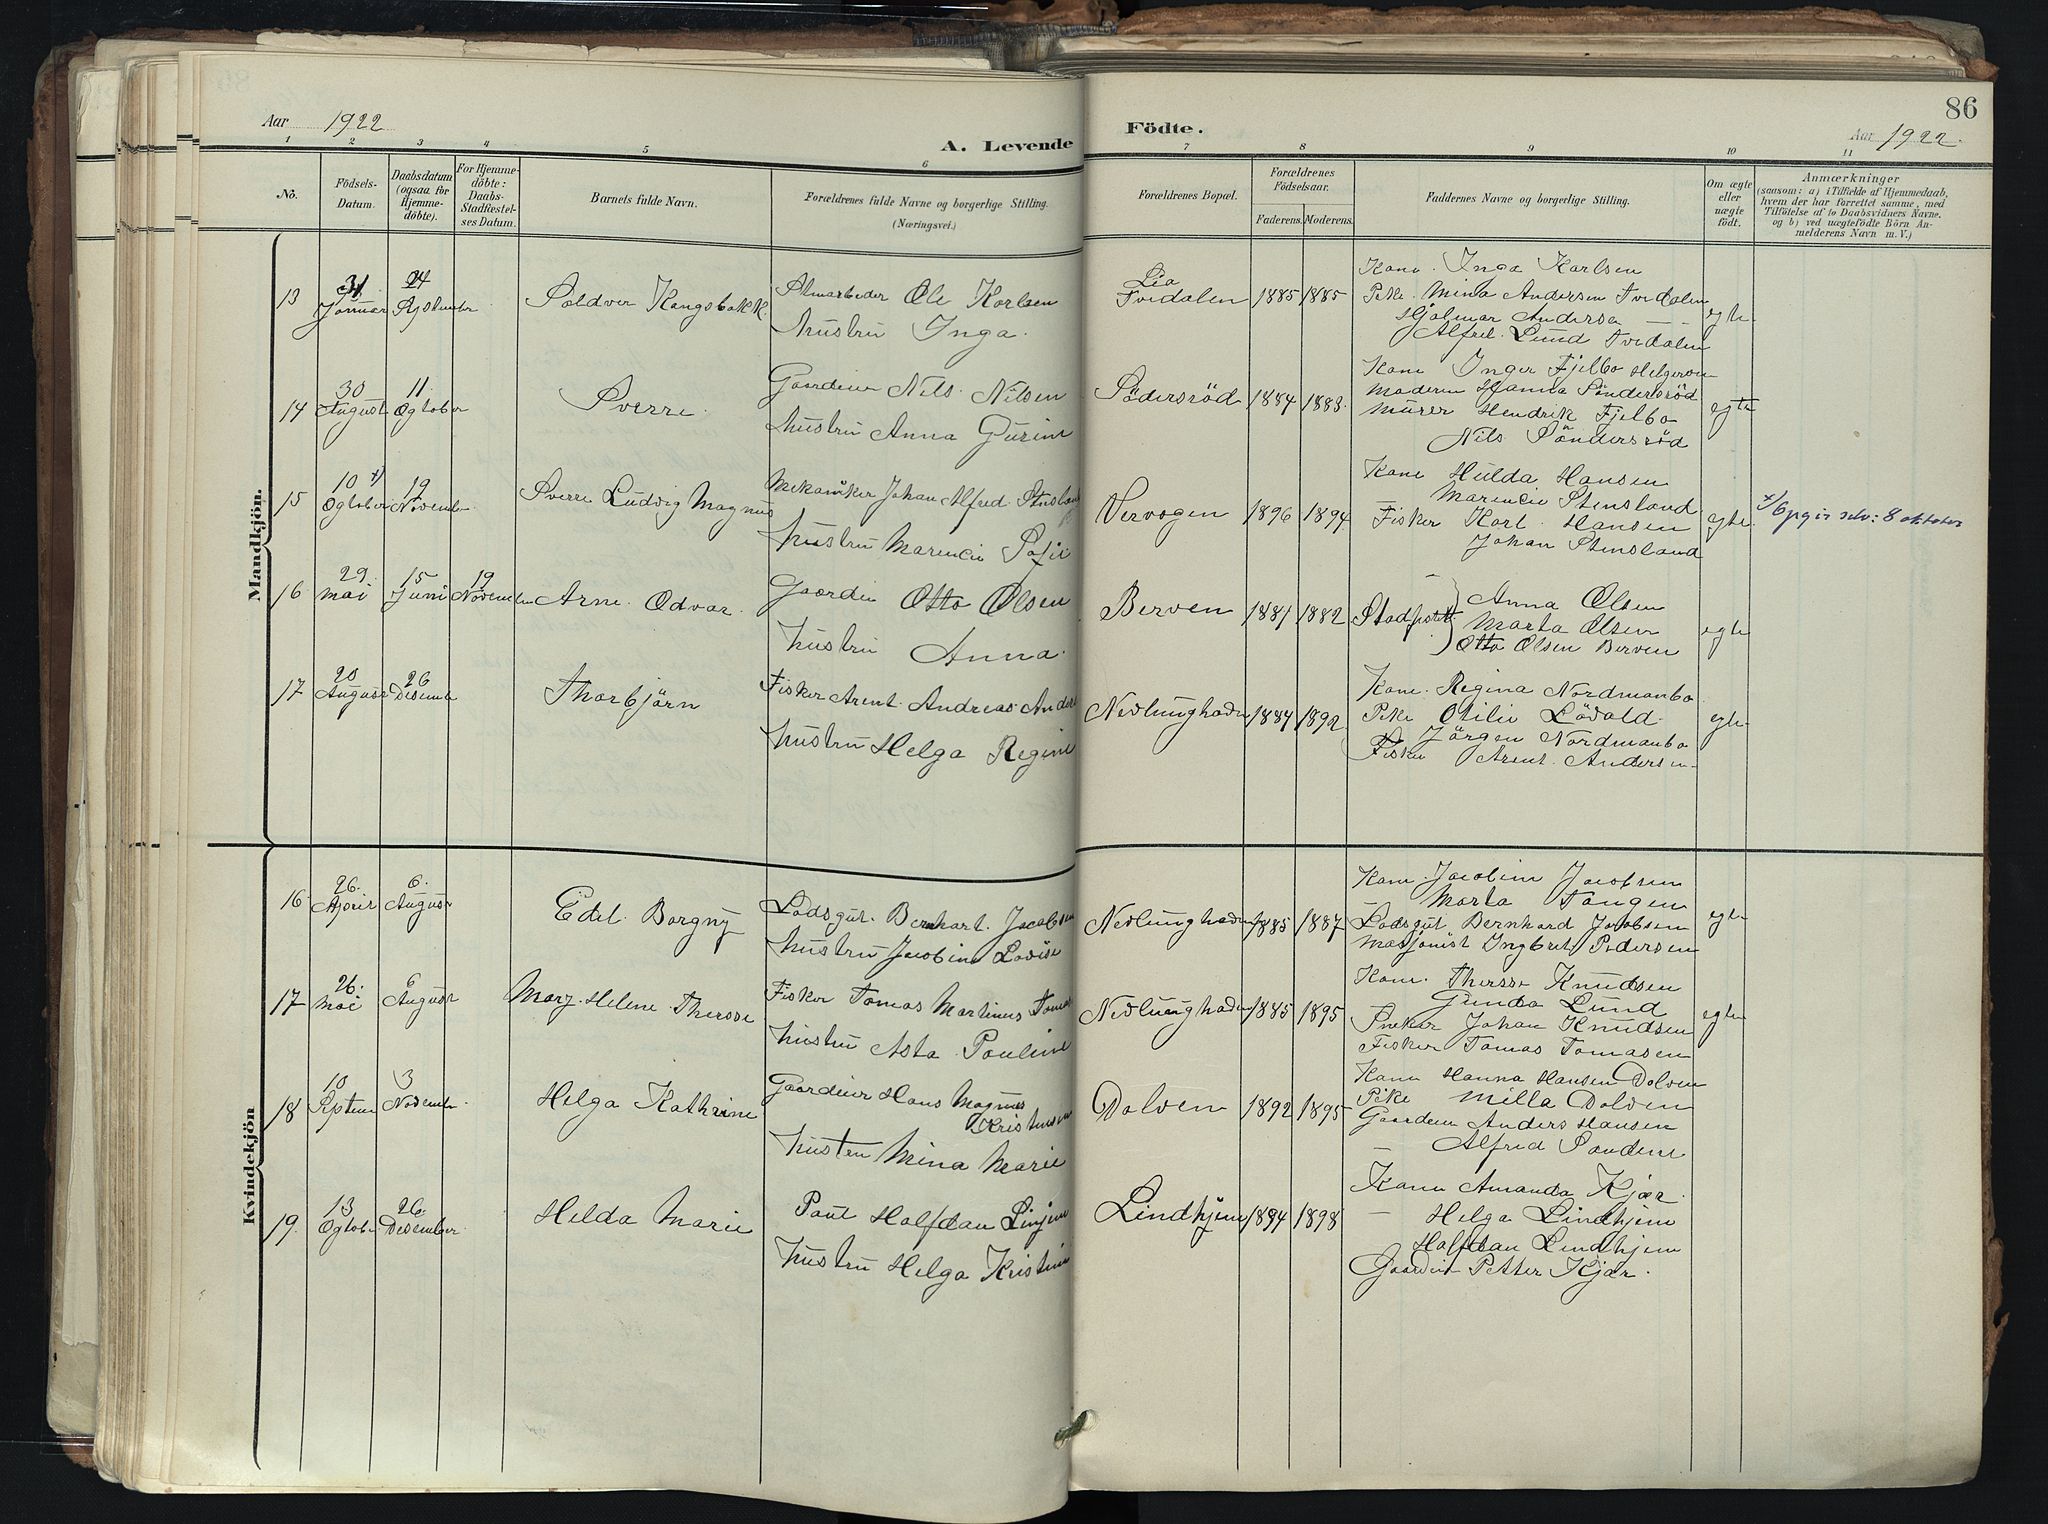 86
Aar 1922
A. Levende
Födte.
Aar 1922.
1 2 3 4 5 6 7 8 9 10 11
No.
Födsels-
Datum.
Daabsdatum
(ogsaa for
Hjemme-
döbte).
For Hjemme-
döbte:
Daabs-
Stadfæstel-
ses Datum.
Barnets fulde Navn.
Forældrenes fulde Navne og borgerlige Stilling.
(Næringsvei.)
Forældrenes Bopæl.
Forældrenes
Födselsaar.
Faderens. Moderens.
Faddernes Navne og borgerlige Stilling.
Om ægte
eller
uægte
födt.
Anmærkninger
(saasom: a) i Tilfælde af Hjemmedaab,
hvem der har forrettet samme, med
Tilföielse af to Daabsvidners Navne.
og b) ved uægtefödte Börn An-
melderens Navn m. V.)
Mandkjön.
13 31 Januar 24 September
Soldver Kongsbakk.
Ole Karlsen
Hustru Inga.
Lia
Tvedalen 1885 1885
Kone. Inga Karlsen
Pike. Mina Andersen Tvedalen
Hjalmar Andersen — —
Alfred. Lund Tvedalen
egte
14 30 August 11. Ogtober
Sverre.
Gaardeier Nils. Nilsen
Hustru Anna Gurine
Södersröd 1884 1883.
Kone Inger Fjelbo Helgeroen
Moderen Hanna Söndersröd
Murer Hendrik Fjelbo
Nils Söndersröd
egte
15 10 x) Ogtober 19 November
Sverre Ludvig Magnus
Mekaniker Johan Alfred. Stensland
Hustru Marencie Sofie
Vervogen 1896 1894
Kone Hulda Hansen
Marencie Stensland
Fisker Karl. Hansen
Johan Stensland
egte.
x) Opgir selv: 8 oktober
16 29. Mai 15 Juni 19 November
Arne. Odvar.
Gaardeier Otto Olsen
Hustru Anna.
Berven 1881 1882
Stadfestet
Anna Olsen
Marta Olsen
Otto Olsen Berven
egte
17 20 August 26 Desember
Thorbjörn
Fisker Arent. Andreas. Anders
Hustru Helga Regine
Nevlunghavn 1884 1892
Kone. Regina Nordmanbo
Pike Otilie Lövald.
Jörgen Nordmanbo
Fisker Arent. Andersen
egte
Kvindekjön
16 26. April 6. August
Edel. Borgny
Lodsgut. Bernhart. Jacobsen
Hustru Jacobine Lovise
Nevlunghavn 1885 1887
Kone. Jacobine Jacobsen
— Marta Tangen
Lodsgut Bernhard Jacobsen
Masjonist Ingbret Pedersen
egte
17 26. Mai 6 August
Marz. Helene. Therese
Fisker Tomas Martinus Tomas
Hustru Asta. Pauline
Nevlunghavn 1885 1895
Kone. Therese Knudsen
Gunda Lund
Johan Knudsen
Fisker Tomas Tomasen
egte
18 10 Septem 3 November.
Helga Kathrine
Gaardeier Hans Magnus
Kristensen
Hustru Mina Marie
Dolven 1892 1895
Kone Hanna Hansen Dolven
Pike Milla Dolven
Gaardeier Anders Hansen
— Alfred
19. 13 Ogtober 26. Desember
Helda Marie
Paul Halfdan Linjem
Hustru Helga Kristine
Lindhjem 1894 1898
Kone Amanda Kjær.
— Helga Lindhjem
Halfdan Lindhjem
Gaardeier Petter Kjær.